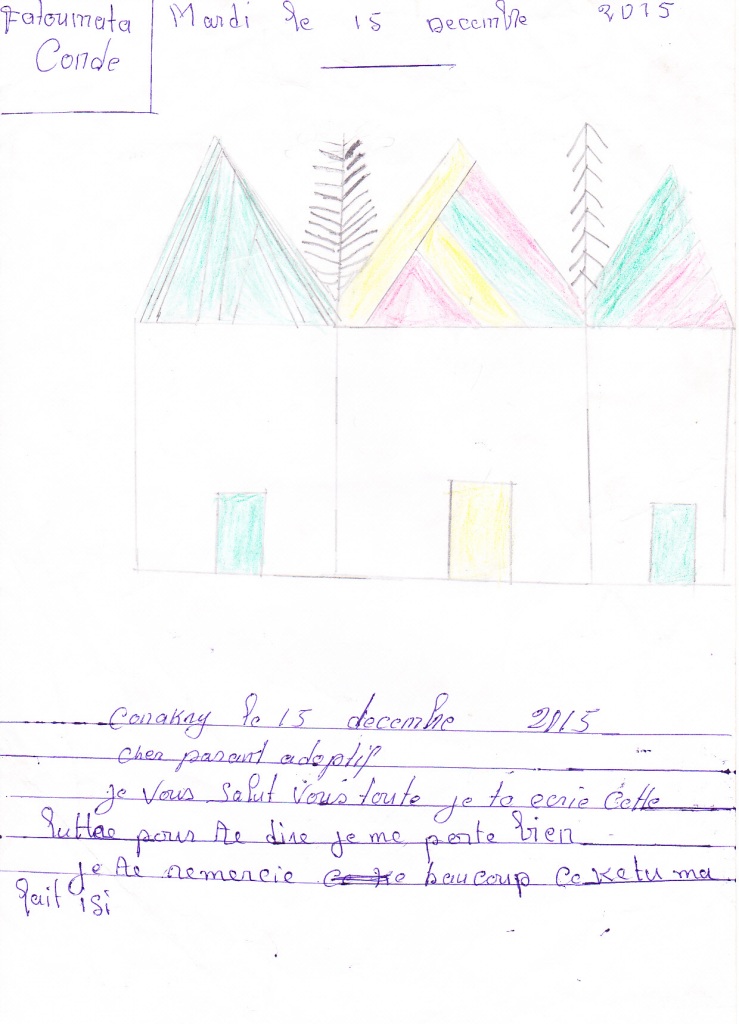 Fatoumata
Conde
Mardi le 15 Decembre 2015
Conakry le 15 decembre 2015
cher parant adoptif
je vous salut vous toute je ta ecrie cette
luttre pour te dire je me porte bien
je te remercie baucoup ce ke tu ma
fait isi